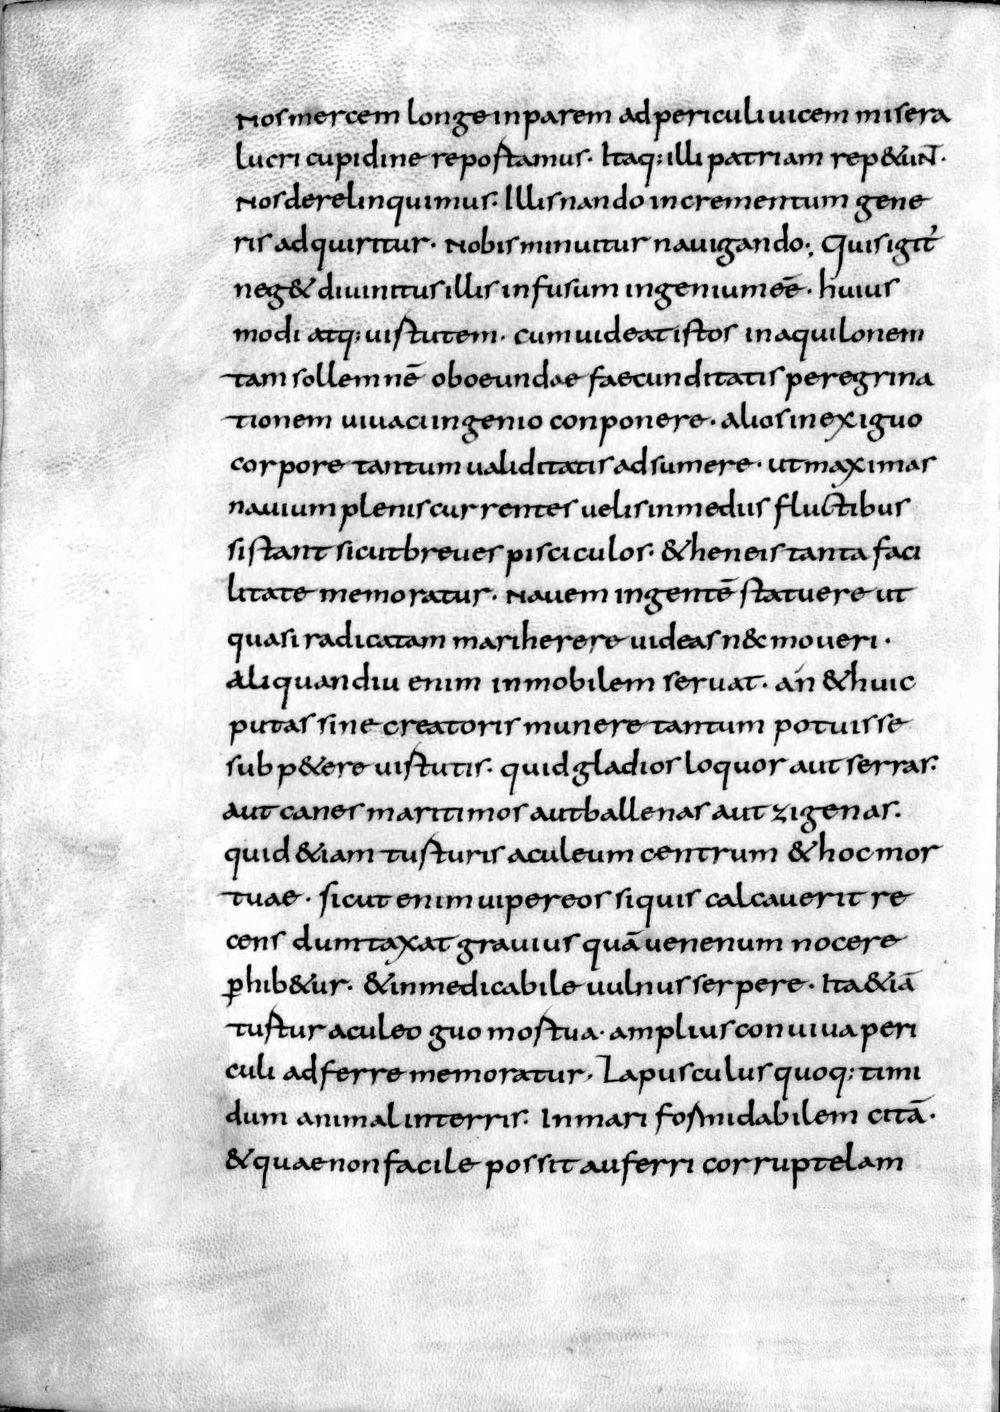 Nos mercem longe inparem ad periculi uicem misera
lucri cupidine reportamus. Itaq; illi patriam rep&uN.
Nos derelinquimus. Illis nando incrementum gene
ris adquiritur. Nobis minuitur nauigando; Quis igit̃
neg& diuinitus illis infusum ingenium eē. huius
modi atq; uirtutem. cum uideat istos in aquilonem
tam sollemnē oboeundae faecunditatis peregrina
tionem uiuaci ingenio conponere. alios in exiguo
corpore tantum ualiditatis adsumere. ut maximas
nauium plenis currentes uelis in mediis fluctibus
sistant sicut breues pisciculos. &heneis tanta faci
litate memoratur. Nauem ingentē statuere ut
quasi radicatam mari herere uideas n&c moueri.
Aliquandiu enim inmobilem seruat. an &huic
putas sine creatoris munere tantum potuisse
subp&ere uirtutis. quid gladios loquor aut serras.
aut canes maritimos aut ballenas aut zigenas.
quid &iam turturis aculeum centrum &hoc mor
tuae. sicut enim uipereos siquis calcauerit re
cens dumtaxat grauius quā uenenum nocere
ꝑhib&ur. &inmedicabile uulnus serpere. Ita &iā
turtur aculeo guo mortua. amplius con uiua peri
culi adferre memoratur. Lapusculus quoq; timi
dum animal in terris. In mari formidabilem citā.
&quae non facile possit auferri corruptelam